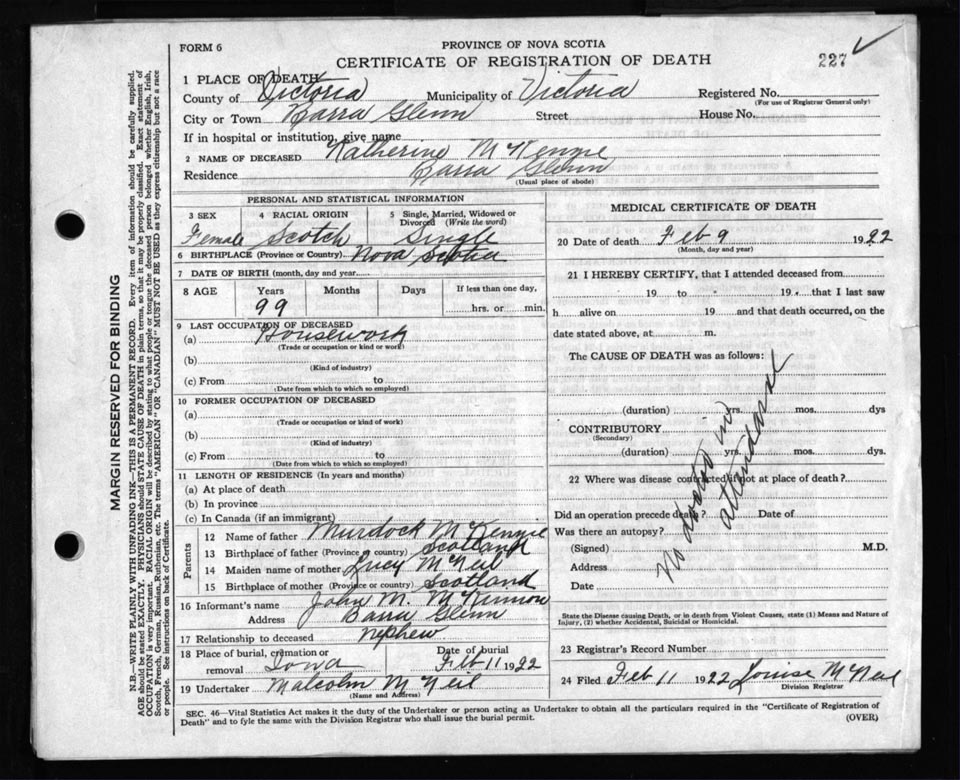 FORM 6
PROVINCE OF NOVA SCOTIA
CERTIFICATE OF REGISTRATION OF DEATH
227
1 PLACE OF DEATH
County of Victoria Municipality of Victoria Registered No.
(For use of Registrar General only)
City or Town Barra Glenn Street House No.
If in hospital or institution, give name
2 NAME OF DECEASED Katherine McKenzie
Residence Barra Glenn
(Usual place of abode)
PERSONAL AND STATISTICAL INFORMATION
3 SEX 4 RACIAL ORIGIN 5 Single, Married, Widowed or Divorced (Write the word)
Female Scotch Single
6 BIRTHPLACE (Province or Country) Nova Scotia
7 DATE OF BIRTH (month, day and year
8 AGE Years Months Days If less than one day,
99 hrs. or min.
9 LAST OCCUPATION OF DECEASED
(a) Housework
(Trade or occupation or kind or work)
(b)
(Kind of industry)
(c) From to
(Date from which to which so employed)
10 FORMER OCCUPATION OF DECEASED
(a)
(Trade or occupation or kind of work)
(b)
(Kind of industry)
(c) From to
(Date from which to which so employed)
11 LENGTH OF RESIDENCE (In years and months)
(a) At place of death
(b) In province
(c) In Canada (if an immigrant)
Parents
12 Name of father Murdock McKenzie
13 Birthplace of father (Province or country) Scotland
14 Maiden name of mother Lucy McNeil
15 Birthplace of mother (Province or country) Scotland
16 Informant's name John M. McKinnon
Address Barra Glenn
17 Relationship to deceased nephew
18 Place of burial, cremation or removal Iona Date of burial Feb 11 1922
19 Undertaker Malcolm McNeil
(Name and Address)
MEDICAL CERTIFICATE OF DEATH
20 Date of death Feb 9 1922
(Month, day and year)
21 I HEREBY CERTIFY, that I attended deceased from
19 to 19 that I last saw
h alive on 19 and that death occurred, on the
date stated above, at m.
The CAUSE OF DEATH was as follows:
No doctor in attendance
(duration) yrs. mos. dys
CONTRIBUTORY
(Secondary)
(duration) yrs. mos. dys.
22 Where was disease contracted if not at place of death?
Did an operation precede death? Date of
Was there an autopsy?
(Signed) M.D.
Address
Date
State the Disease causing Death, or in death from Violent Causes, state (1) Means and Nature of
Injury, (2) whether Accidental, Suicidal or Homicidal.
23 Registrar's Record Number
24 Filed Feb 11 1922 Louise McNeil
Division Registrar
SEC. 46—Vital Statistics Act makes it the duty of the Undertaker or person acting as Undertaker to obtain all the particulars required in the "Certificate of Registration of
Death" and to fyle the same with the Division Registrar who shall issue the burial permit.
(OVER)
MARGIN RESERVED FOR BINDING
N.B.—WRITE PLAINLY WITH UNFADING INK—THIS IS A PERMANENT RECORD. Every item of information should be carefully supplied.
AGE should be stated EXACTLY. PHYSICIANS should STATE CAUSE OF DEATH in plain terms, so that it may be properly classified. Exact statement of
OCCUPATION is very important. RACIAL ORIGIN will be described by stating to what people or tongue the deceased person belonged whether English, Irish,
Scotch, French, German, Russian, Ruthenian, etc. The terms "AMERICAN" OR "CANADIAN" MUST NOT BE USED as they express citizenship but not a race
or people. See instructions on back of Certificate.